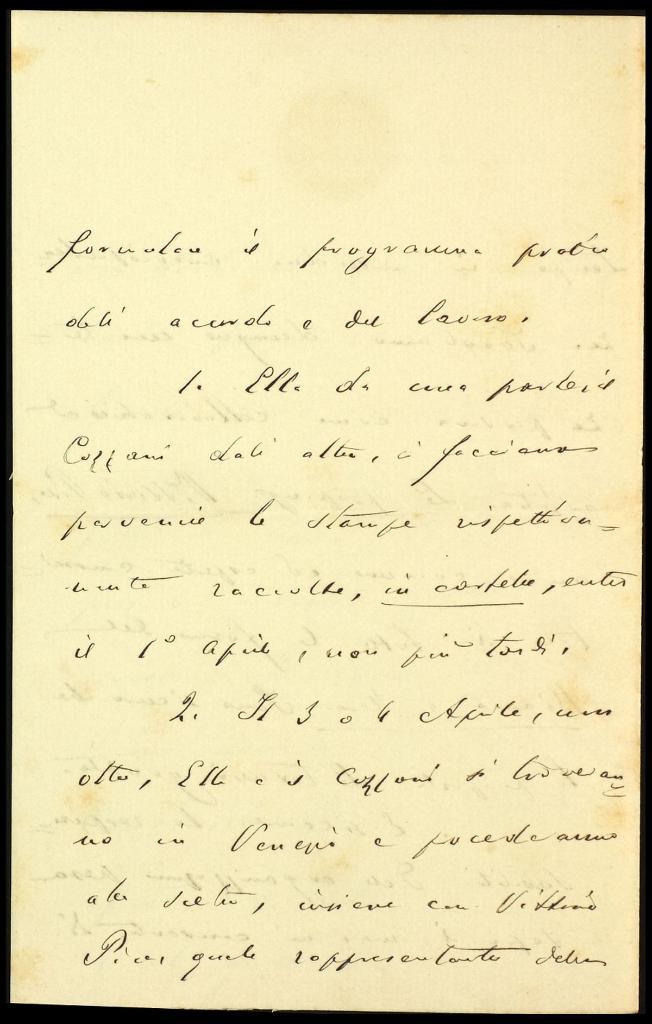 formulare il programma pratico
dell' accordo e del lavoro.
1. Ella da una parte, il
Cozzani dall' altra, ci facciano
pervenire le stampe rispettiva=
mente raccolte, in cartelle, entro
il 1º Aprile, non più tardi.
2. Il 3 o 4 Aprile, non
oltre, Ella e il Cozzani si troveran
no in Venezia e procederanno
alla scelta, insieme con Vittorio
Pica, quale rappresentante della